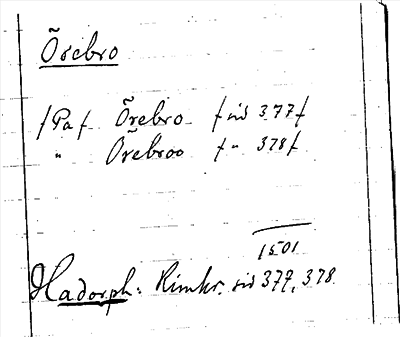 Örebro
/Pa/ Örebro /sid 377/
" Örebroo /" 378/
1501
Hadorph: Rimkr. sid 377, 378